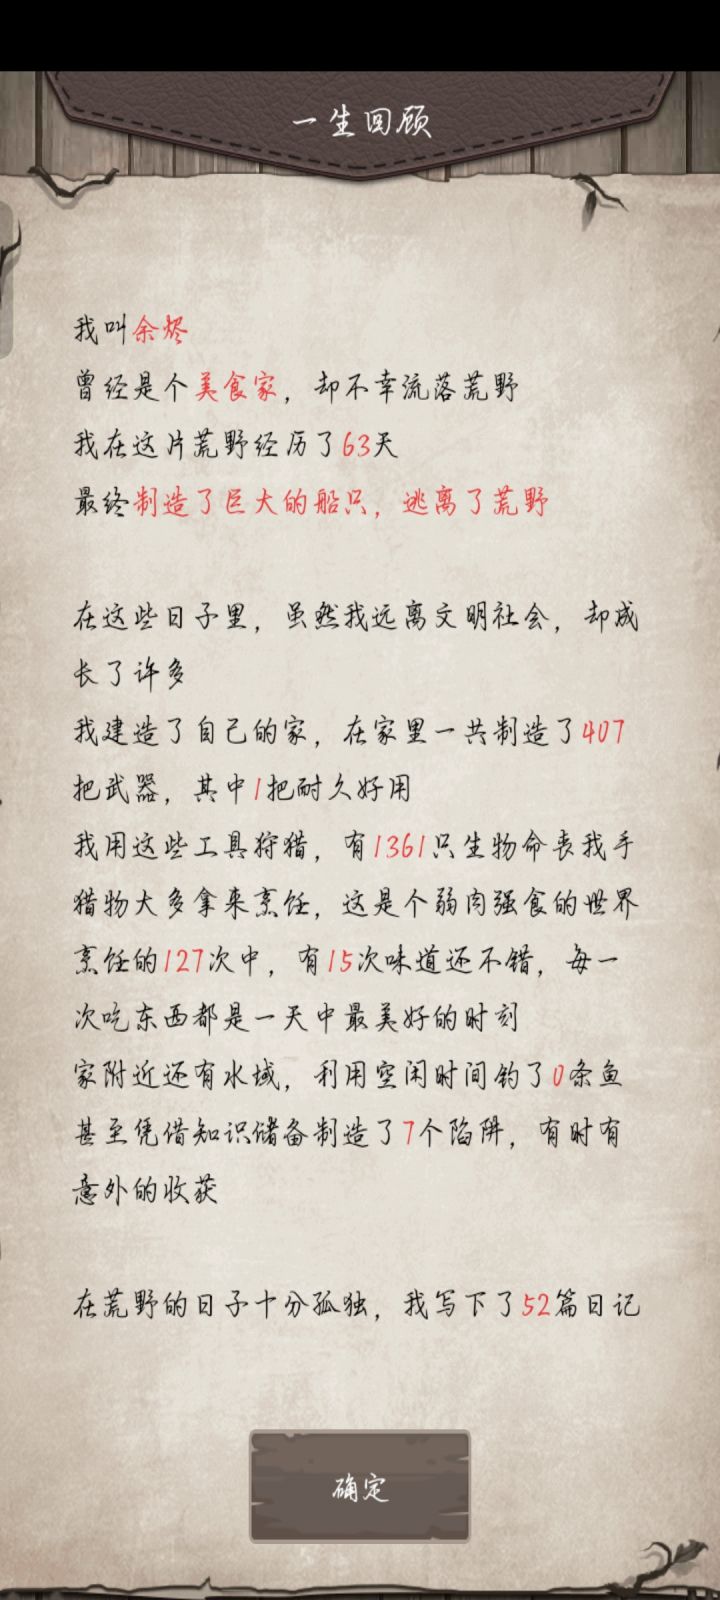 一生回顾
我叫余烬
曾经是个美食家，却不幸流落荒野
我在这片荒野经历了63天
最终制造了巨大的船只，逃离了荒野
在这些日子里，虽然我远离文明社会，却成
长了许多
我建造了自己的家，在家里一共制造了407
把武器，其中1把耐久好用
我用这些工具狩猎，有1361只生物命丧我手
猎物大多拿来烹饪，这是个弱肉强食的世界
烹饪的127次中，有15次味道还不错，每一
次吃东西都是一天中最美好的时刻
家附近还有水域，利用空闲时间钓了0条鱼
甚至凭借知识储备制造了7个陷阱，有时有
意外的收获
在荒野的日子十分孤独，我写下了52篇日记
确定